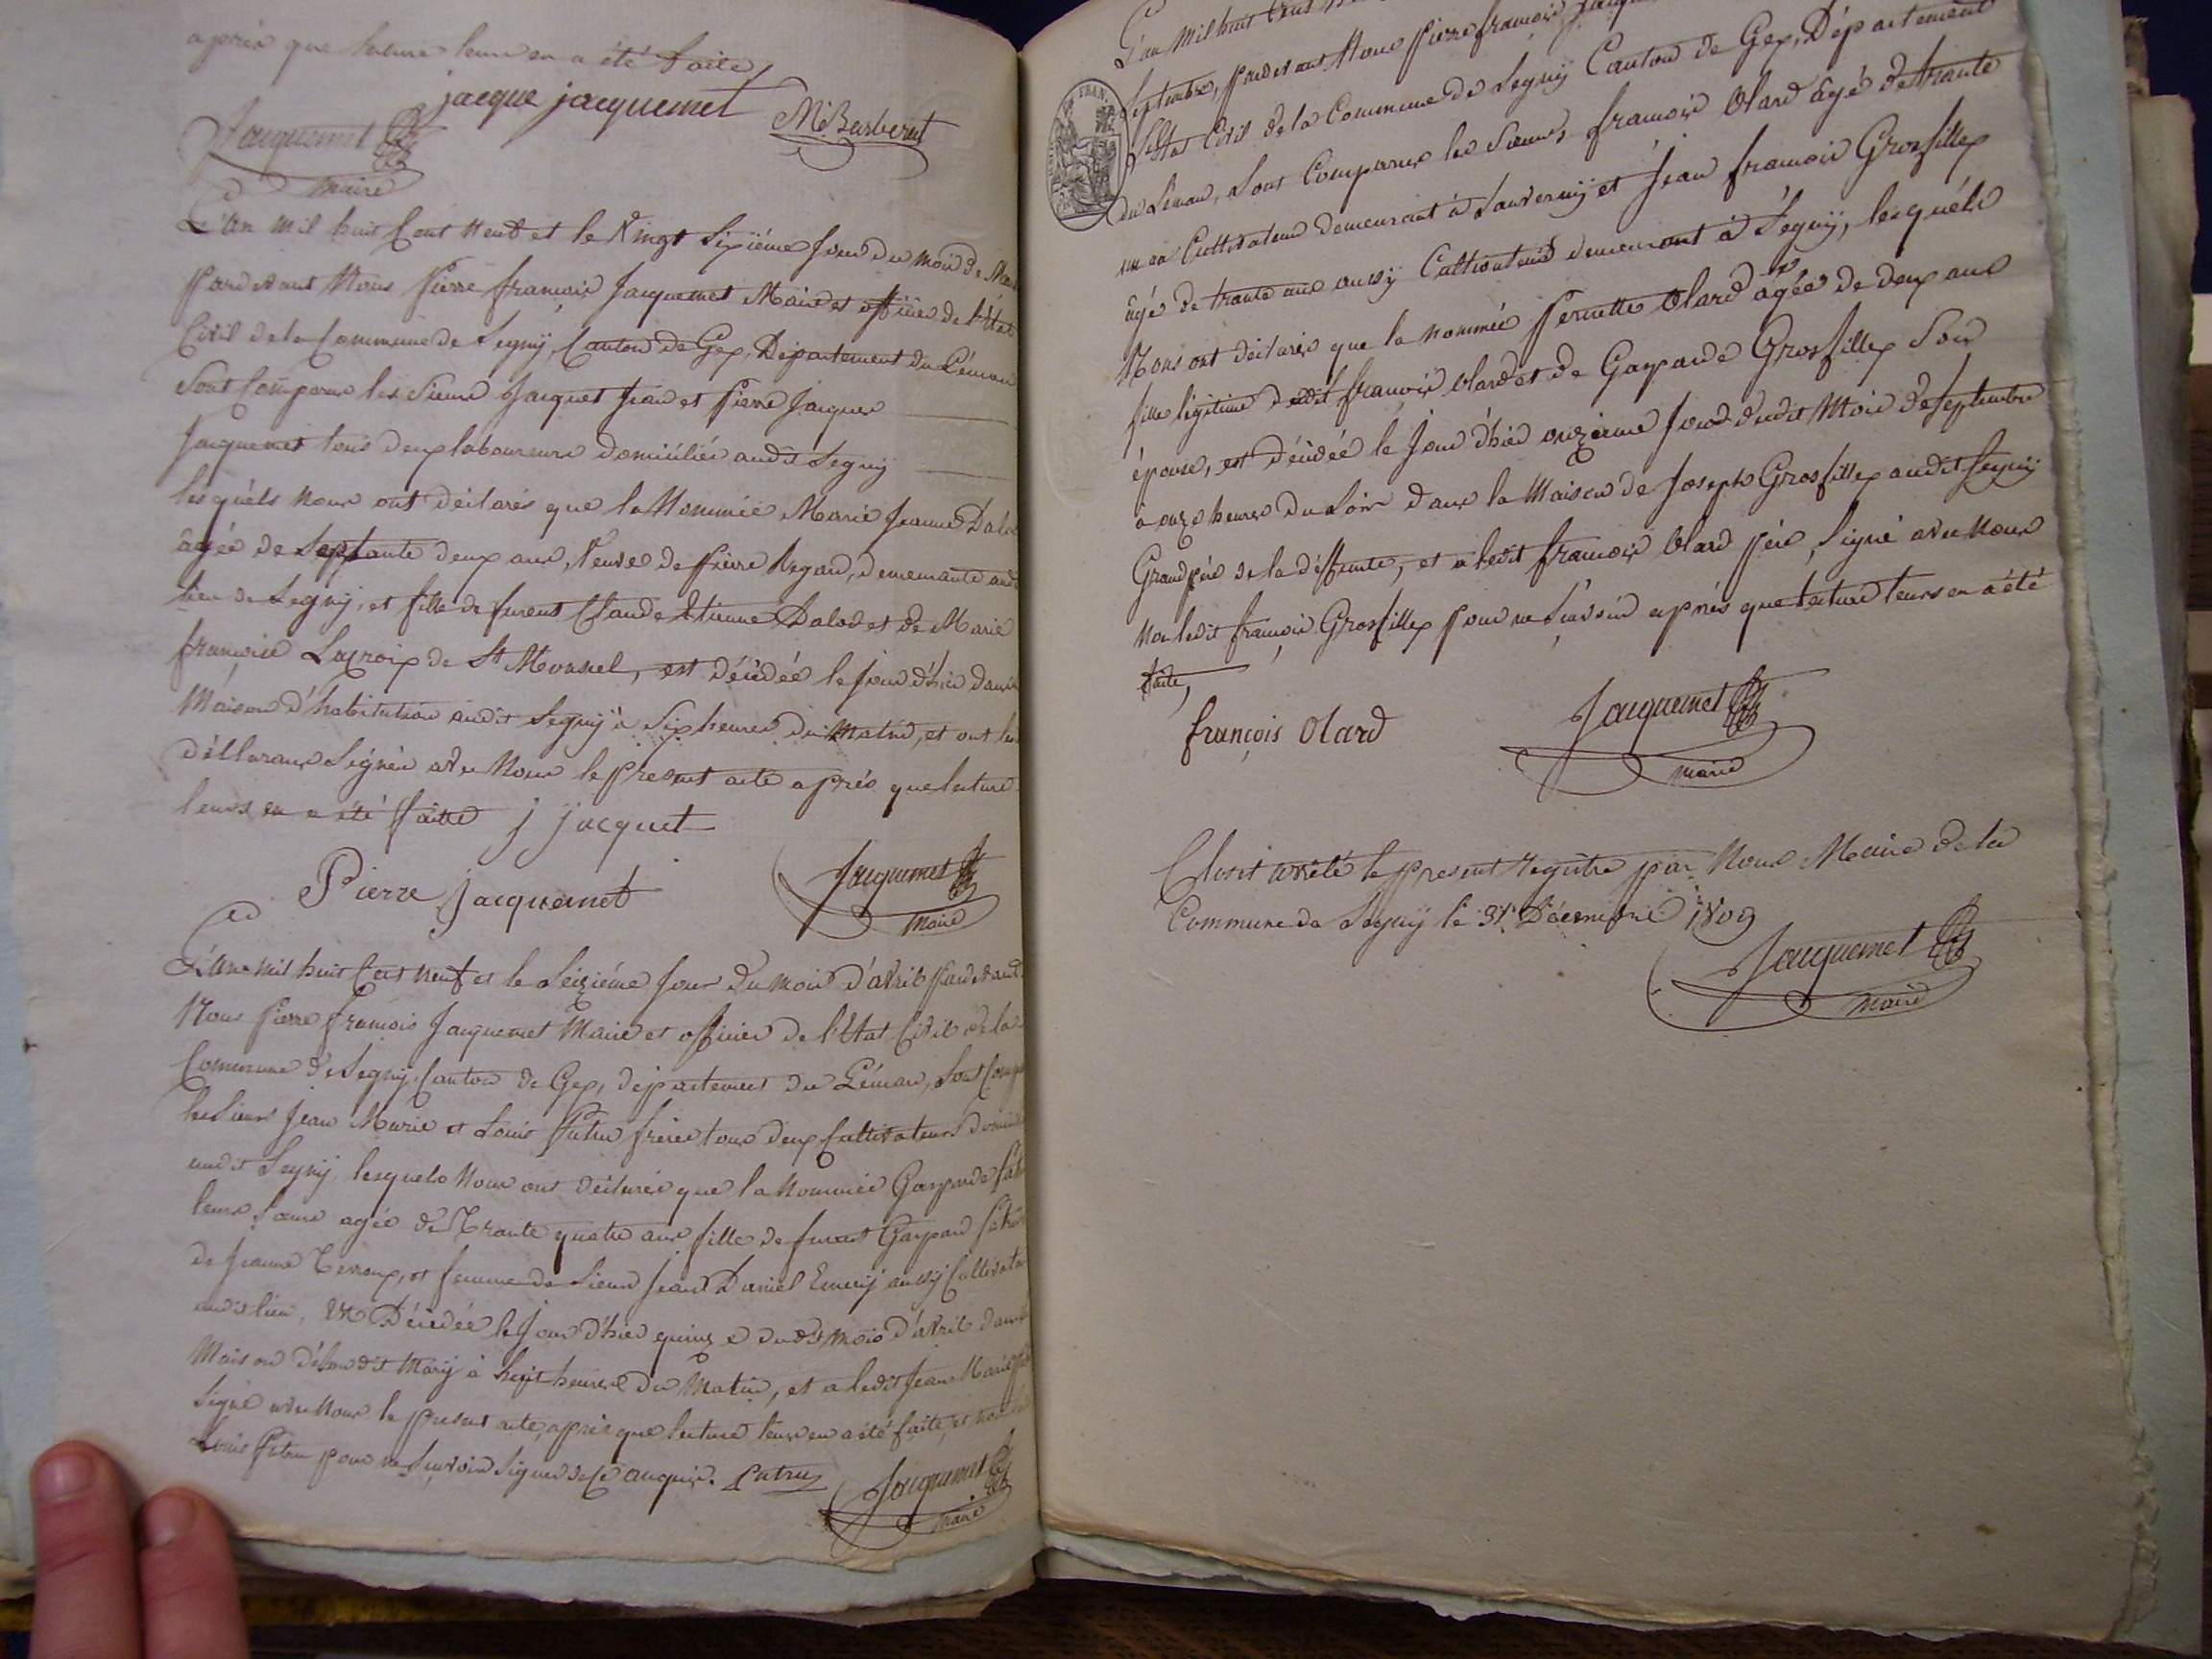 après que lecture leur en a été faite,
jacque jacquemet
Jacquemet
M Barberat
maire
L'an mil huit Cent neuf et le Vingt Sixiéme Jour du mois de
Pardevant Nous Pierre françois Jacquemet Maire et officier de l'État
Civil de la Commune de Segny, Canton de Gex, Département du Léman
Sont Comparus les Sieurs Jacquet Jean et Pierre Jacques
Jacquemet tous deux laboureurs domiciliés audit Segny
lesquéls nous ont déclarés que la Nommée Marie Jeanne
âgée de Septante deux ans, Veuve de Pierre Regard, demeurante
lieu de Segny, et fille de furent Claude Etienne Dalod et de Marie
françoise Lacroix de St Mourrel, est décédée le jour d'hier dans
Maison d'habitation audit Segny à Six heures du Matin, et ont les
déllarans Signés avec Nous le present acte après que lecture
leurs en a été faitte
j jacquet
Pierre jacquemet
Jacquemet
maire
L'an mil huit Cent neuf et le Seiziéme Jour du mois d'avril Pardevant
Nous Pierre françois Jacquemet Maire et officier de l'Etat Civil de la
Commune de Segny, Canton de Gex, département du Léman, Sont
les Sieurs Jean Marie et Louis Putru freres tous deux Cultivateurs
audit Segny, lesquels Nous ont declarés que la Nommée Gasparde
leurs Soeur agée de Trante quatre ans fille de furent Gaspard
de Jeanne Terroux, et femme de Sieur Jean Daniel Emery aussy
audit lieu, est Décédée le Jour d'hier quinze dudit mois d'avril dans
Maison dudit Mary à huit heures du Matin, et a ledit Jean Marie
Signé avec Nous le present acte, après que lecture leurs en a été faite, et non
Louis Putru pour ne Savoir Signer de Ce anquis.
Putru
Jacquemet
maire
L'an Mil huit Cens
Septembre, Pardevant Nous Pierre françois
l'Etat Civil de la Commune de Segny Canton de Gex, Département
du Léman, Sont Comparus les Sieurs françois Olard âgé de trante
un en Cultivateur demeurant à Sauverny et Jean françois Grosfillex
âgé de trante ans aussy Cultivateur demeurant à Ségny, lesquéls
Nous ont déclarés que la nommée Pernette Olard agée de deux ans
fille légitime dudit françois olard et de Gasparde Grosfillex Son
épouse, est décédée le Jour d'hier onzieme Jour dudit Mois de Septembre
à onze heures du Soir dans la Maison de Joseph Grosfillex audit Segny
Grand père de la déffunte, et a ledit françois Olard pére, Signé avec Nous
non ledit françois Grosfillex pour ne Savoir après que lecture leurs en a été
faite,
françois Olard
Jacquemet
maire
Clos et arrêté le present registre par Nous Maire de la
Commune de Segny le 31 Décembre 1809
Jacquemet
maire